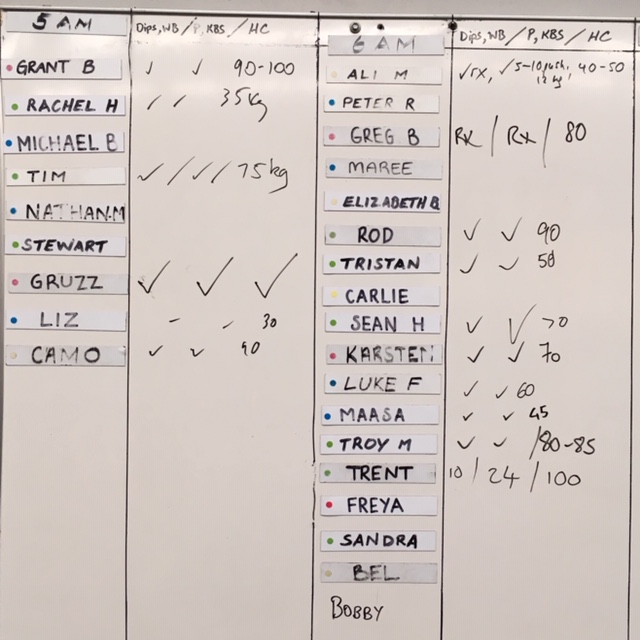 5 AM Dips, WB / P, KBS / HC
GRANT B ✓ ✓ 90-100
RACHEL H ✓ ✓ 35kg
MICHAEL B
TIM ✓ / ✓ / 75kg
NATHAN.M
STEWART
GRUZZ ✓ ✓ ✓
LIZ - ✓ 30
CAMO ✓ ✓ 90
6 AM Dips, WB / P, KBS / HC
ALI M ✓rx, ✓ 5-10 push, 40-50
12 kg
PETER R
GREG B Rx / Rx / 80
MAREE
ELIZABETH B
ROD ✓ ✓ 90
TRISTAN ✓ ✓ 50
CARLIE
SEAN H ✓ ✓ 70
KARSTEN ✓ ✓ 70
LUKE F ✓ ✓ 60
MAASA ✓ ✓ 45
TROY M ✓ ✓ /80-85
TRENT 10 / 24 / 100
FREYA
SANDRA
BEL
BOBBY